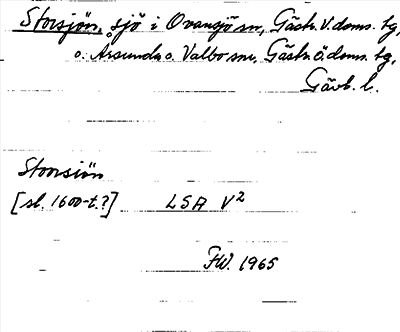 Storsjön, sjö i Ovansjö sn, Gästr. V. doms. tg,
o. Årsunda o. Valbo snr, Gästr. ö. doms. tg,
Gävb. l.
Stoorsiön
[sl. 1600-t.?] LSA V2
FW. 1965